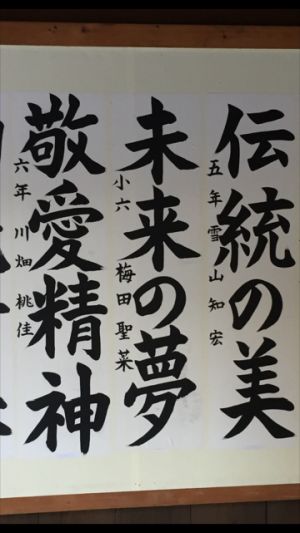 伝統の美
五年 雪山知宏
未来の夢
小六 梅田聖菜
敬愛精神
六年 川畑桃佳